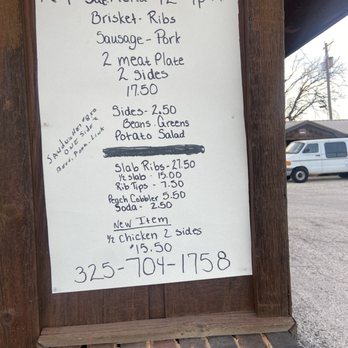 Brisket - Ribs
Sausage - Pork
2 meat Plate
2 sides
17.50
Sides - 2.50
Beans Greens
Potato Salad
ONE Side
Slab Ribs - 27.50
½ slab - 15.00
Rib Tips - 7.50
Peach Cobbler 5.50
Soda - 2.50
New Item
½ Chicken 2 sides
$15.50
325-704-1758